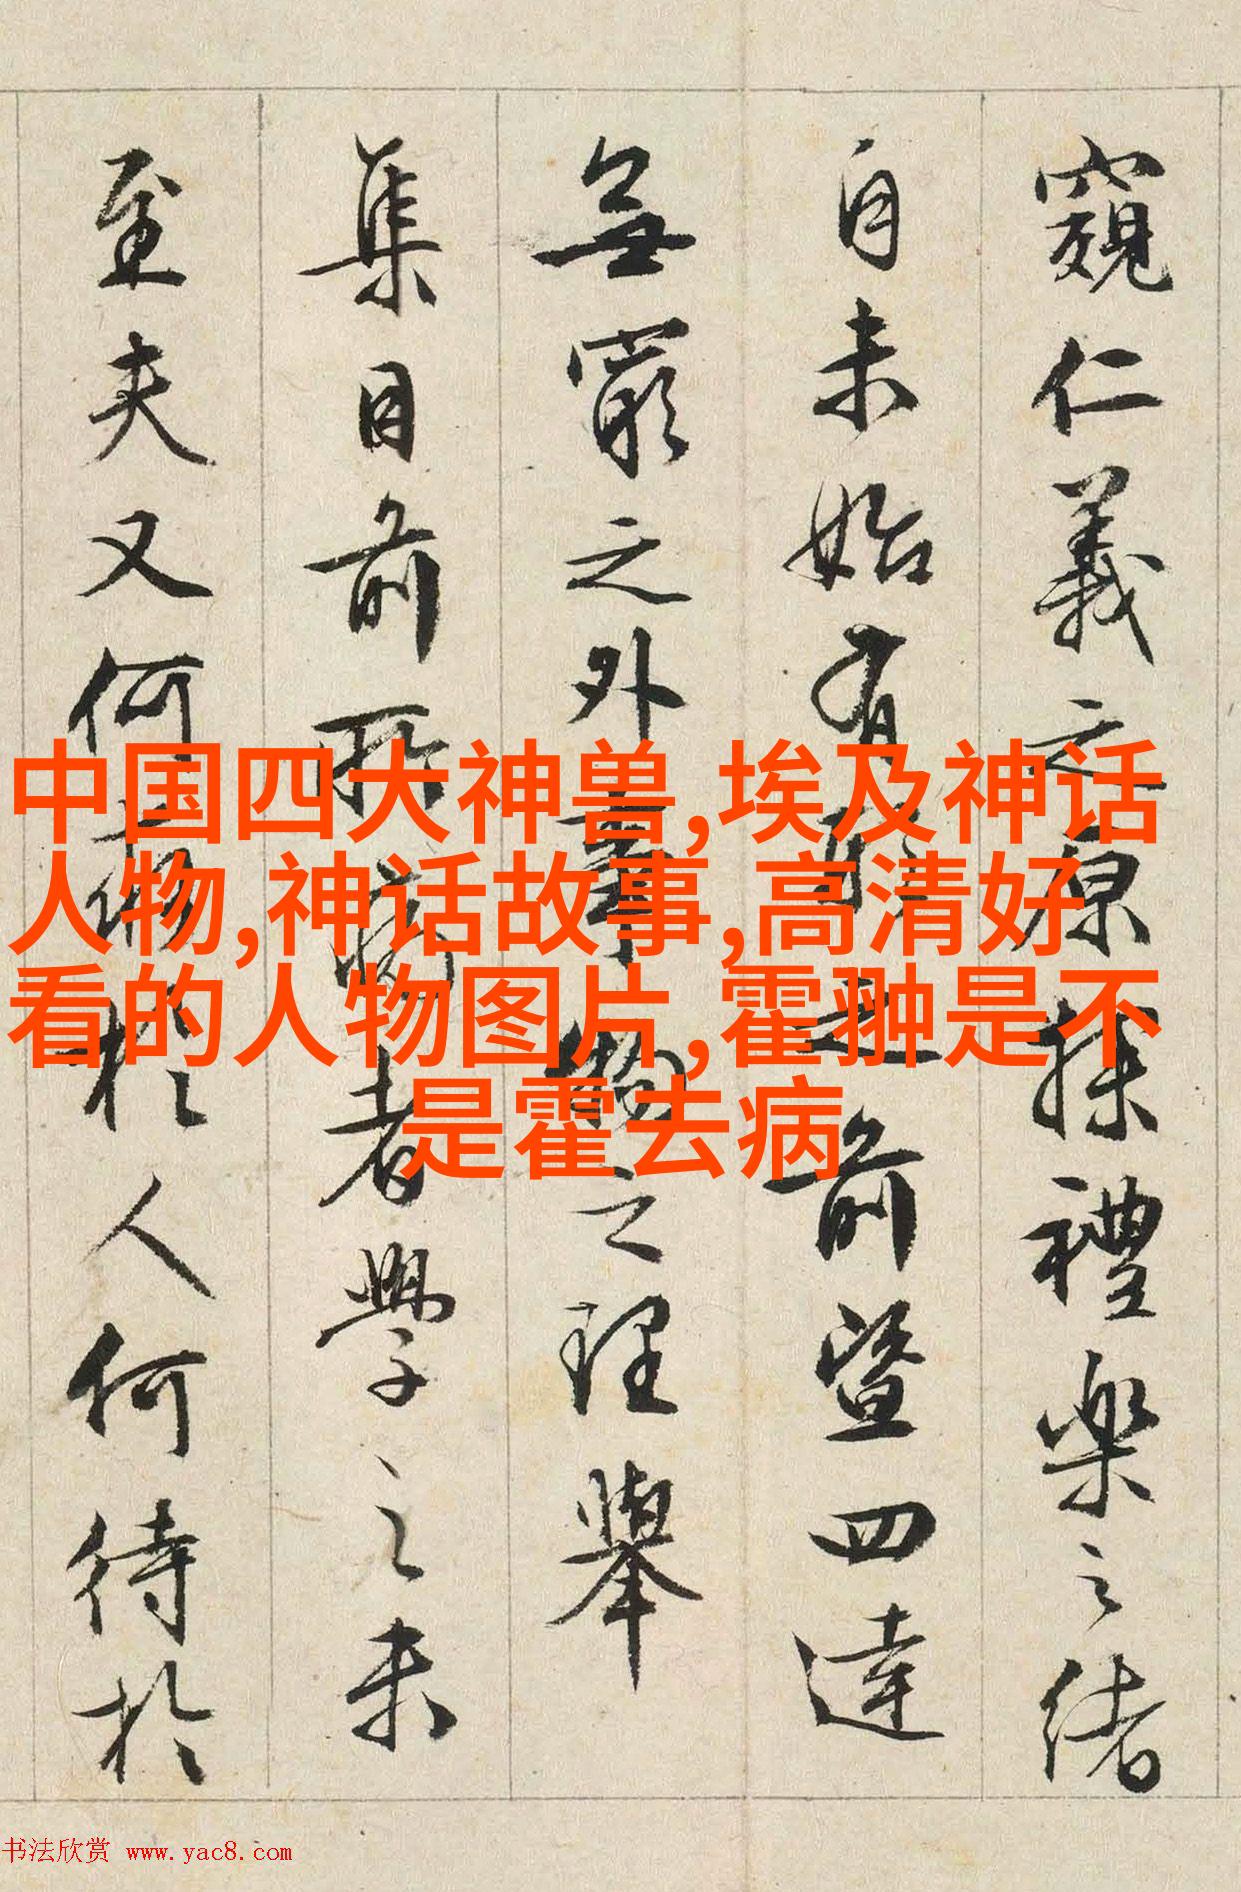 窺仁義之原探禮樂之緒
自未始有
之前暨四達
無窮之外事物之理舉
集目前所
者學之未
至夫又何
於人何待於
中国四大神兽,埃及神话
人物,神话故事,高清好
看的人物图片,霍翀是不
是霍去病
书法欣赏 www.yac8.com